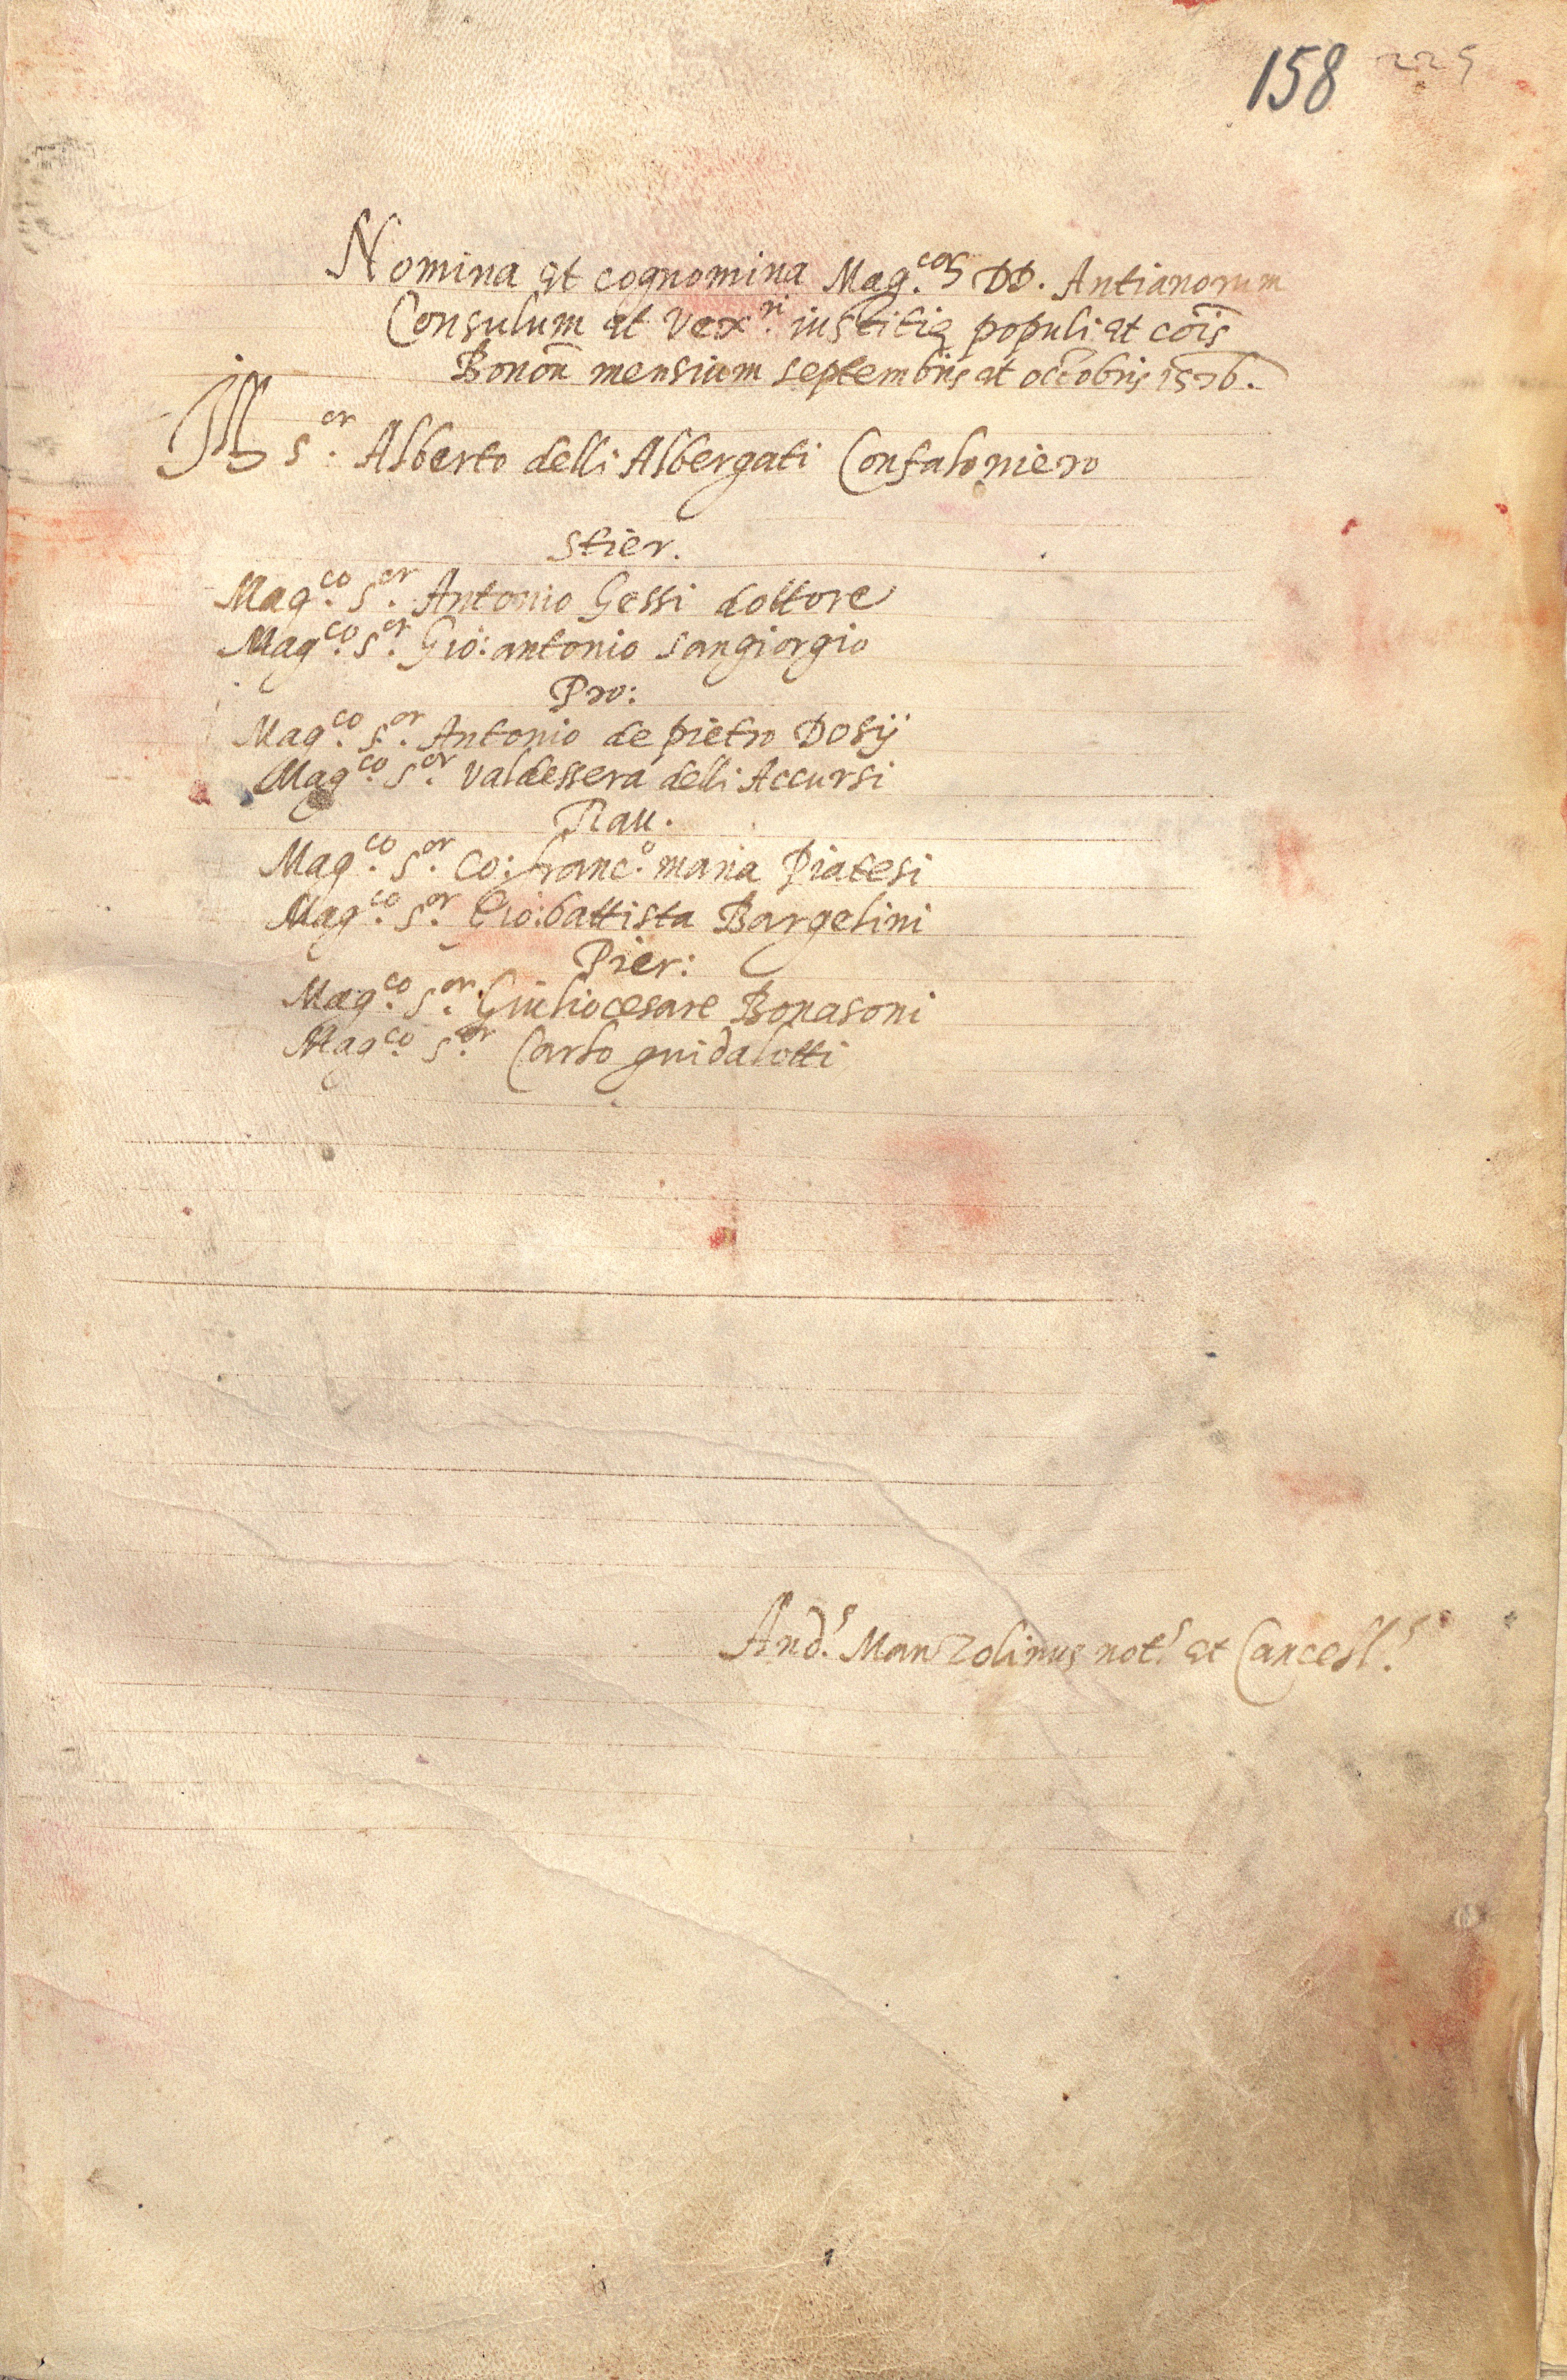 158 225
Nomina et cognomina Mag.cor DD. Antianorum
Consulum et Vex.ri iustitię populi et cōis
Bonoñ mensium septembris et octobris 1576.
Ill. s.or Alberto delli Albergati Confaloniero
Stier.
Mag.co s.or Antonio Gessi dottore
Mag.co s.or Gio: antonio sangiorgio
Pro:
Mag.co s.or Antonio de pietro Dosij
Mag.co s.or Valdessera delli Accursi
Rau.
Mag.co s.or Co: franc.o maria Piatesi
Mag.co s.or Gio: battista Bargelini
Pier:
Mag.co s.or Giuliocesare Bonasoni
Mag.co s.or Carlo guidalotti
And.s Manzolinus not.s et Cancell.s